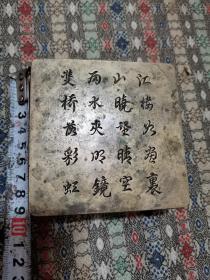 江城如畫裏
山曉望晴空
兩水夾明鏡
雙橋落彩虹
3 4 5 6 7 8 9 10